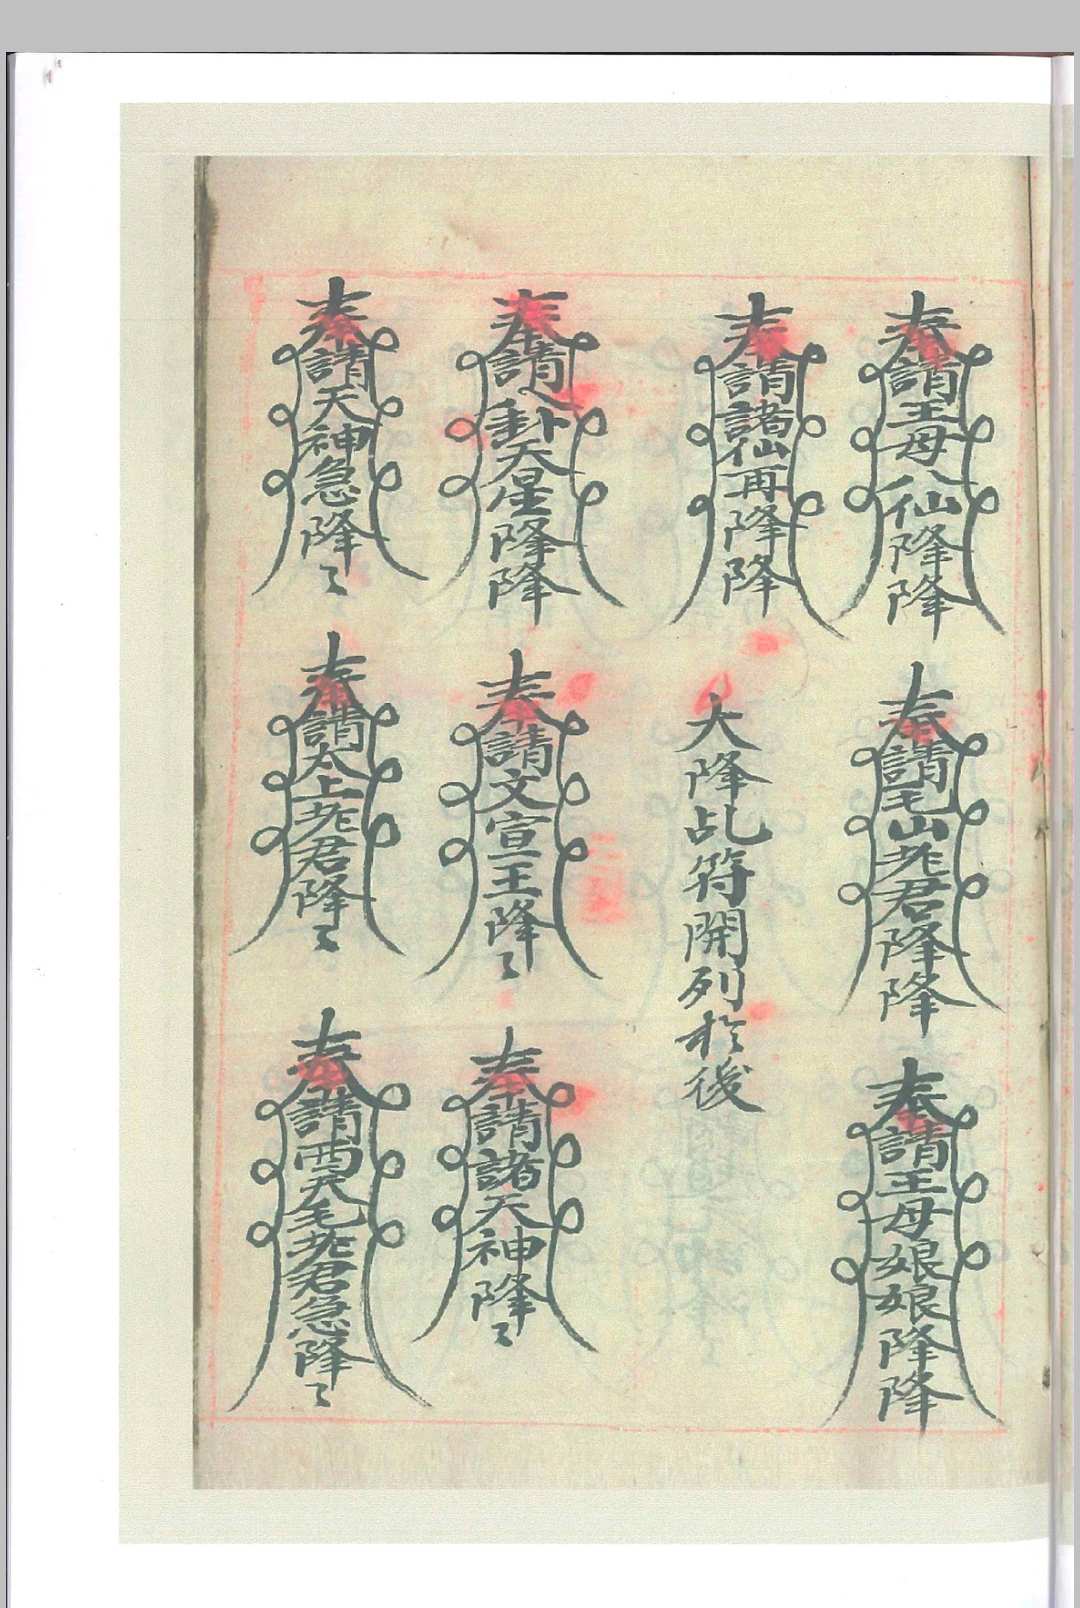 奉請王母八仙降降
奉請毛山老君降降
奉請王母娘娘降降
奉請諸仙再降降
大降乩符開列於後
奉請八卦天星降降
奉請文宣王降〻
奉請諸天神降〻
奉請天神急降〻
奉請太上老君降〻
奉請西天毛老君急降〻